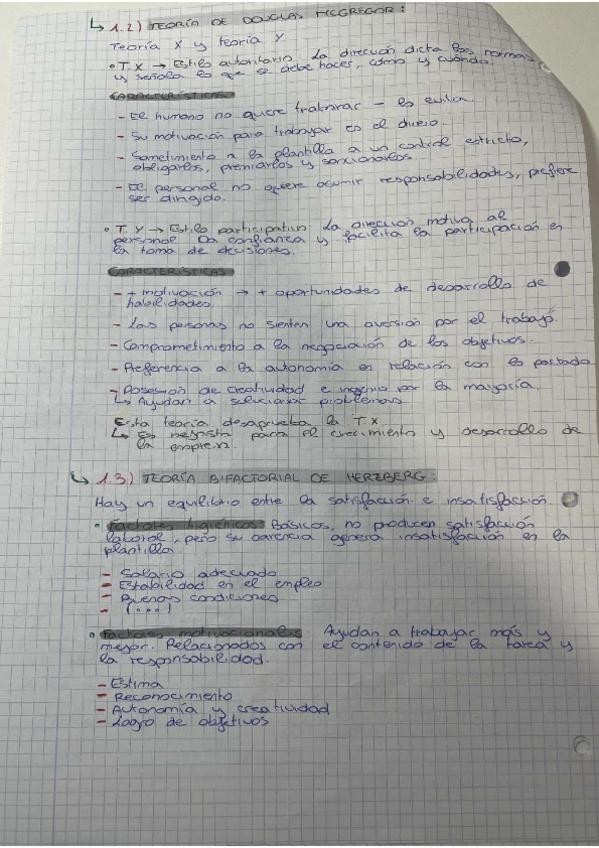 ↳ 1.2) TEORÍA DE DOUGLAS MCGREGOR:
Teoría X y teoría Y
• T.X → Estilo autoritario. La dirección dicta las normas
y señala lo que se debe hacer, cómo y cuándo.
CARACTERÍSTICAS
- El humano no quiere trabajar – lo evita.
- Su motivación para trabajar es el dinero.
- Sometimiento a la plantilla a un control estricto,
obligarlos, premiarlos y sancionarlos.
- El personal no quiere asumir responsabilidades, prefiere
ser dirigido.
• T.Y → Estilo participativo. La dirección motiva al
personal. Da confianza y facilita la participación en
la toma de decisiones.
CARACTERÍSTICAS
- + motivación → + oportunidades de desarrollo de
habilidades.
- Las personas no sienten una aversión por el trabajo.
- Comprometimiento a la negociación de los objetivos.
- Preferencia a la autonomía en relación con lo pactado
- Posesión de creatividad e ingenio por la mayoría.
↳ Ayudan a solucionar problemas.
Esta teoría desaprueba la T.X
↳ Es negativa para el crecimiento y desarrollo de
la empresa.
↳ 1.3) TEORÍA BIFACTORIAL DE HERZBERG:
Hay un equilibrio entre la satisfacción e insatisfacción
• Factores higiénicos: Básicos, no producen satisfacción
laboral, pero su carencia genera insatisfacción en la
plantilla
- Salario adecuado
- Estabilidad en el empleo
- Buenas condiciones
- (...)
• Factores motivacionales: Ayudan a trabajar más y
mejor. Relacionados con el contenido de la tarea y
la responsabilidad.
- Estima
- Reconocimiento
- Autonomía y creatividad
- Logro de objetivos